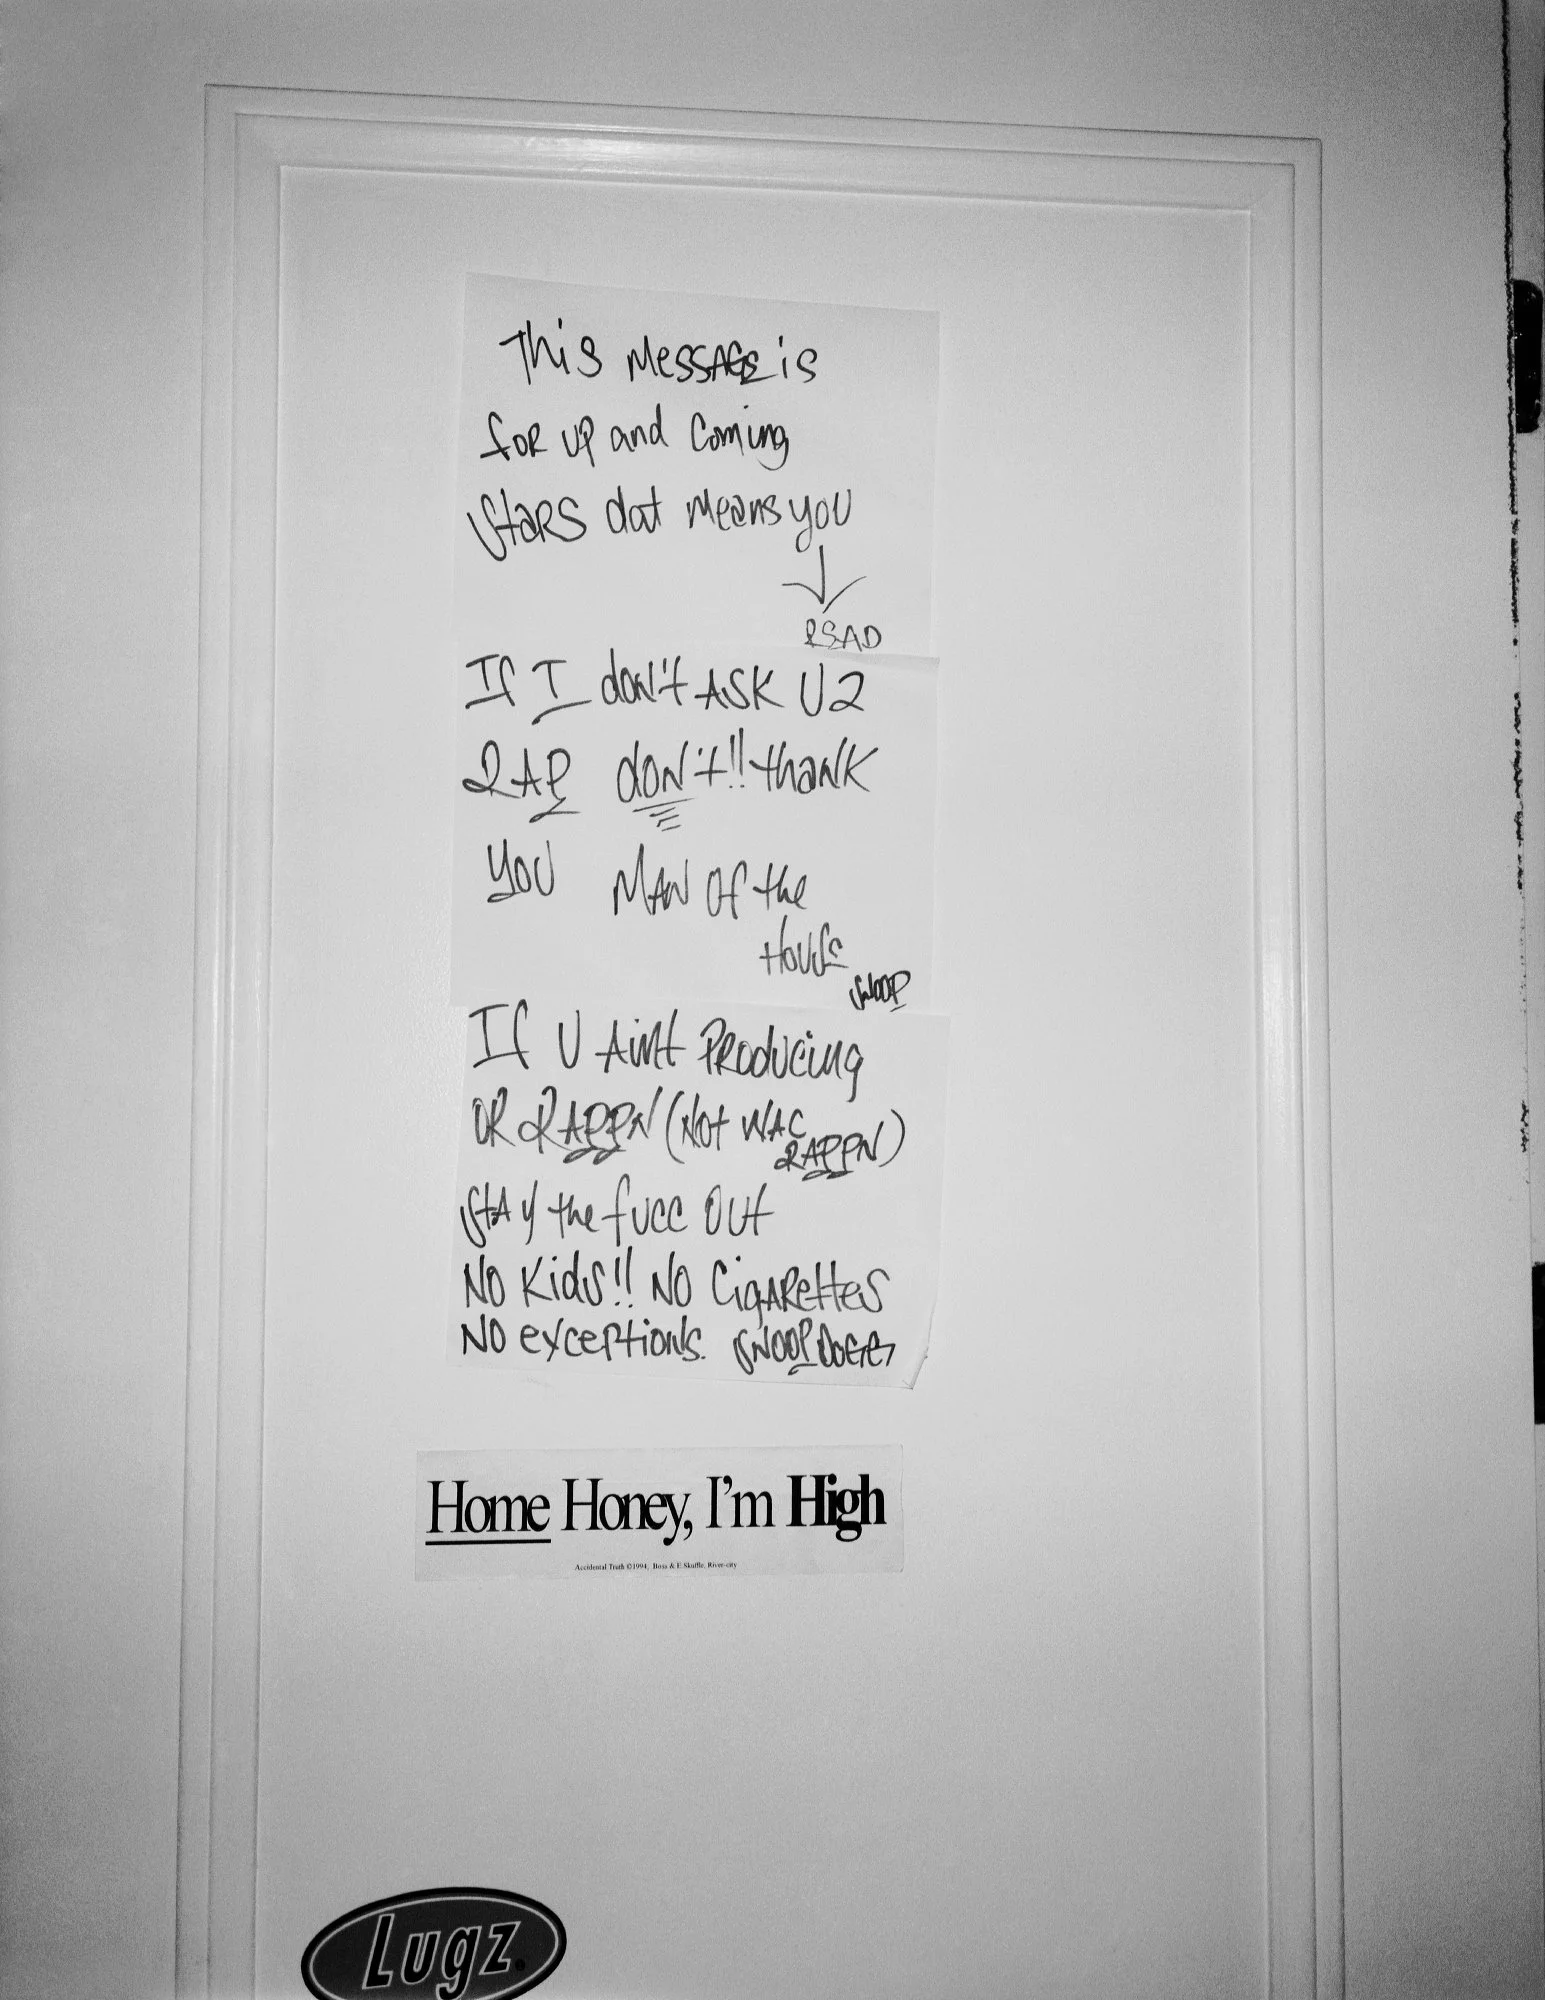 This MESSAGE is
for up and Coming
Stars dat means you
READ
If I don't ASK U 2
RAP don't!! thank
you MAN Of the
House
SNOOP
If U Aint PRODUcing
OR RAPPN (Not WAC
RAPPN)
StAy the fucc Out
No Kids!! No CigARettes
No exceptions. SNOOP DOGG
Home Honey, I'm High
Accidental Truth ©1994, Boss & E.Skuffle, River-city
Lugz.